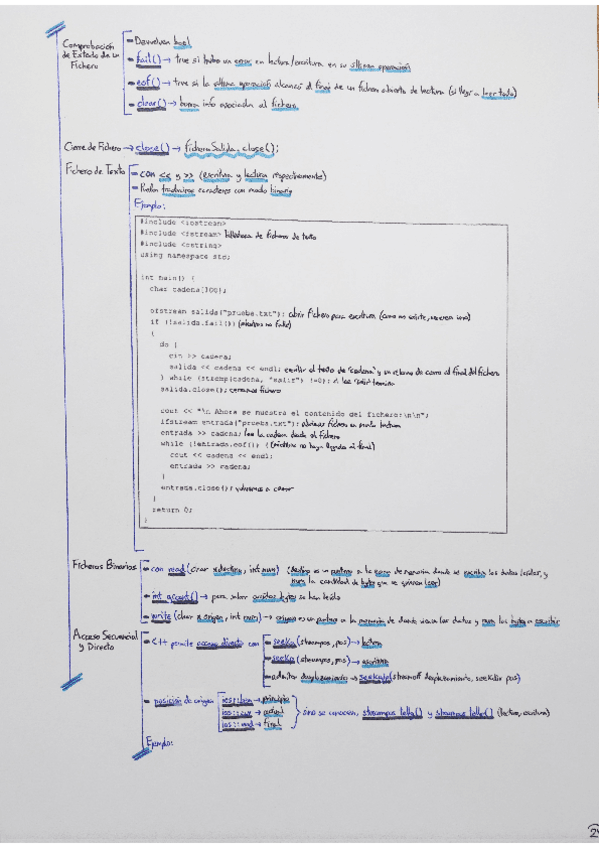 Comprobación de Estado de un Fichero
- Devuelven bool
- fail() → true si hubo un error en lectura/escritura en su última operación
- eof() → true si la última operación alcanzó el final de un fichero abierto de lectura (si llegó a leer todo)
- clear() → borra info asociada al fichero
Cierre de Fichero → close() → ficheroSalida.close();
Fichero de Texto
- con << y >> (escritura y lectura respectivamente)
- Podían traducirse caracteres con modo binario
Ejemplo:
#include <iostream>
#include <fstream> biblioteca de ficheros de texto
#include <cstring>
using namespace std;
int main() {
char cadena[100];
ofstream salida("prueba.txt"); abrir fichero para escritura (como no existe, se crea uno)
if (!salida.fail()) (mientras no falle)
{
do {
cin >> cadena;
salida << cadena << endl; escribir el texto de "cadena" y un retorno de carro al final del fichero
} while (strcmp(cadena, "salir") !=0); si lee "salir" termina
salida.close(); cerramos fichero
cout << "\n Ahora se muestra el contenido del fichero:\n\n";
ifstream entrada("prueba.txt"); abrimos fichero en modo lectura
entrada >> cadena; lee la cadena desde el fichero
while (!entrada.eof()) { (mientras no haya llegado al final)
cout << cadena << endl;
entrada >> cadena;
}
entrada.close(); volvemos a cerrar
}
return 0;
}
Ficheros Binarios
- con read(char *destino, int num) (destino es un puntero a la zona de memoria donde se escriben los datos leídos, y
num la cantidad de bytes que se quieren leer)
- int gcount() → para saber cuántos bytes se han leído
- write(char *origen, int num) → origen es un puntero a la memoria de donde vienen los datos y num los bytes a escribir
Acceso Secuencial y Directo
- C++ permite acceso directo con
- seekg(streampos, pos) → lectura
- seekp(streampos, pos) → escritura
- admiten desplazamiento → (streamoff desplazamiento, seekdir pos)
- posición de origen
ios::beg → principio
ios::cur → actual
ios::end → final
sino se conocen, streampos tellg() y streampos tellp() (lectura, escritura)
Ejemplo: